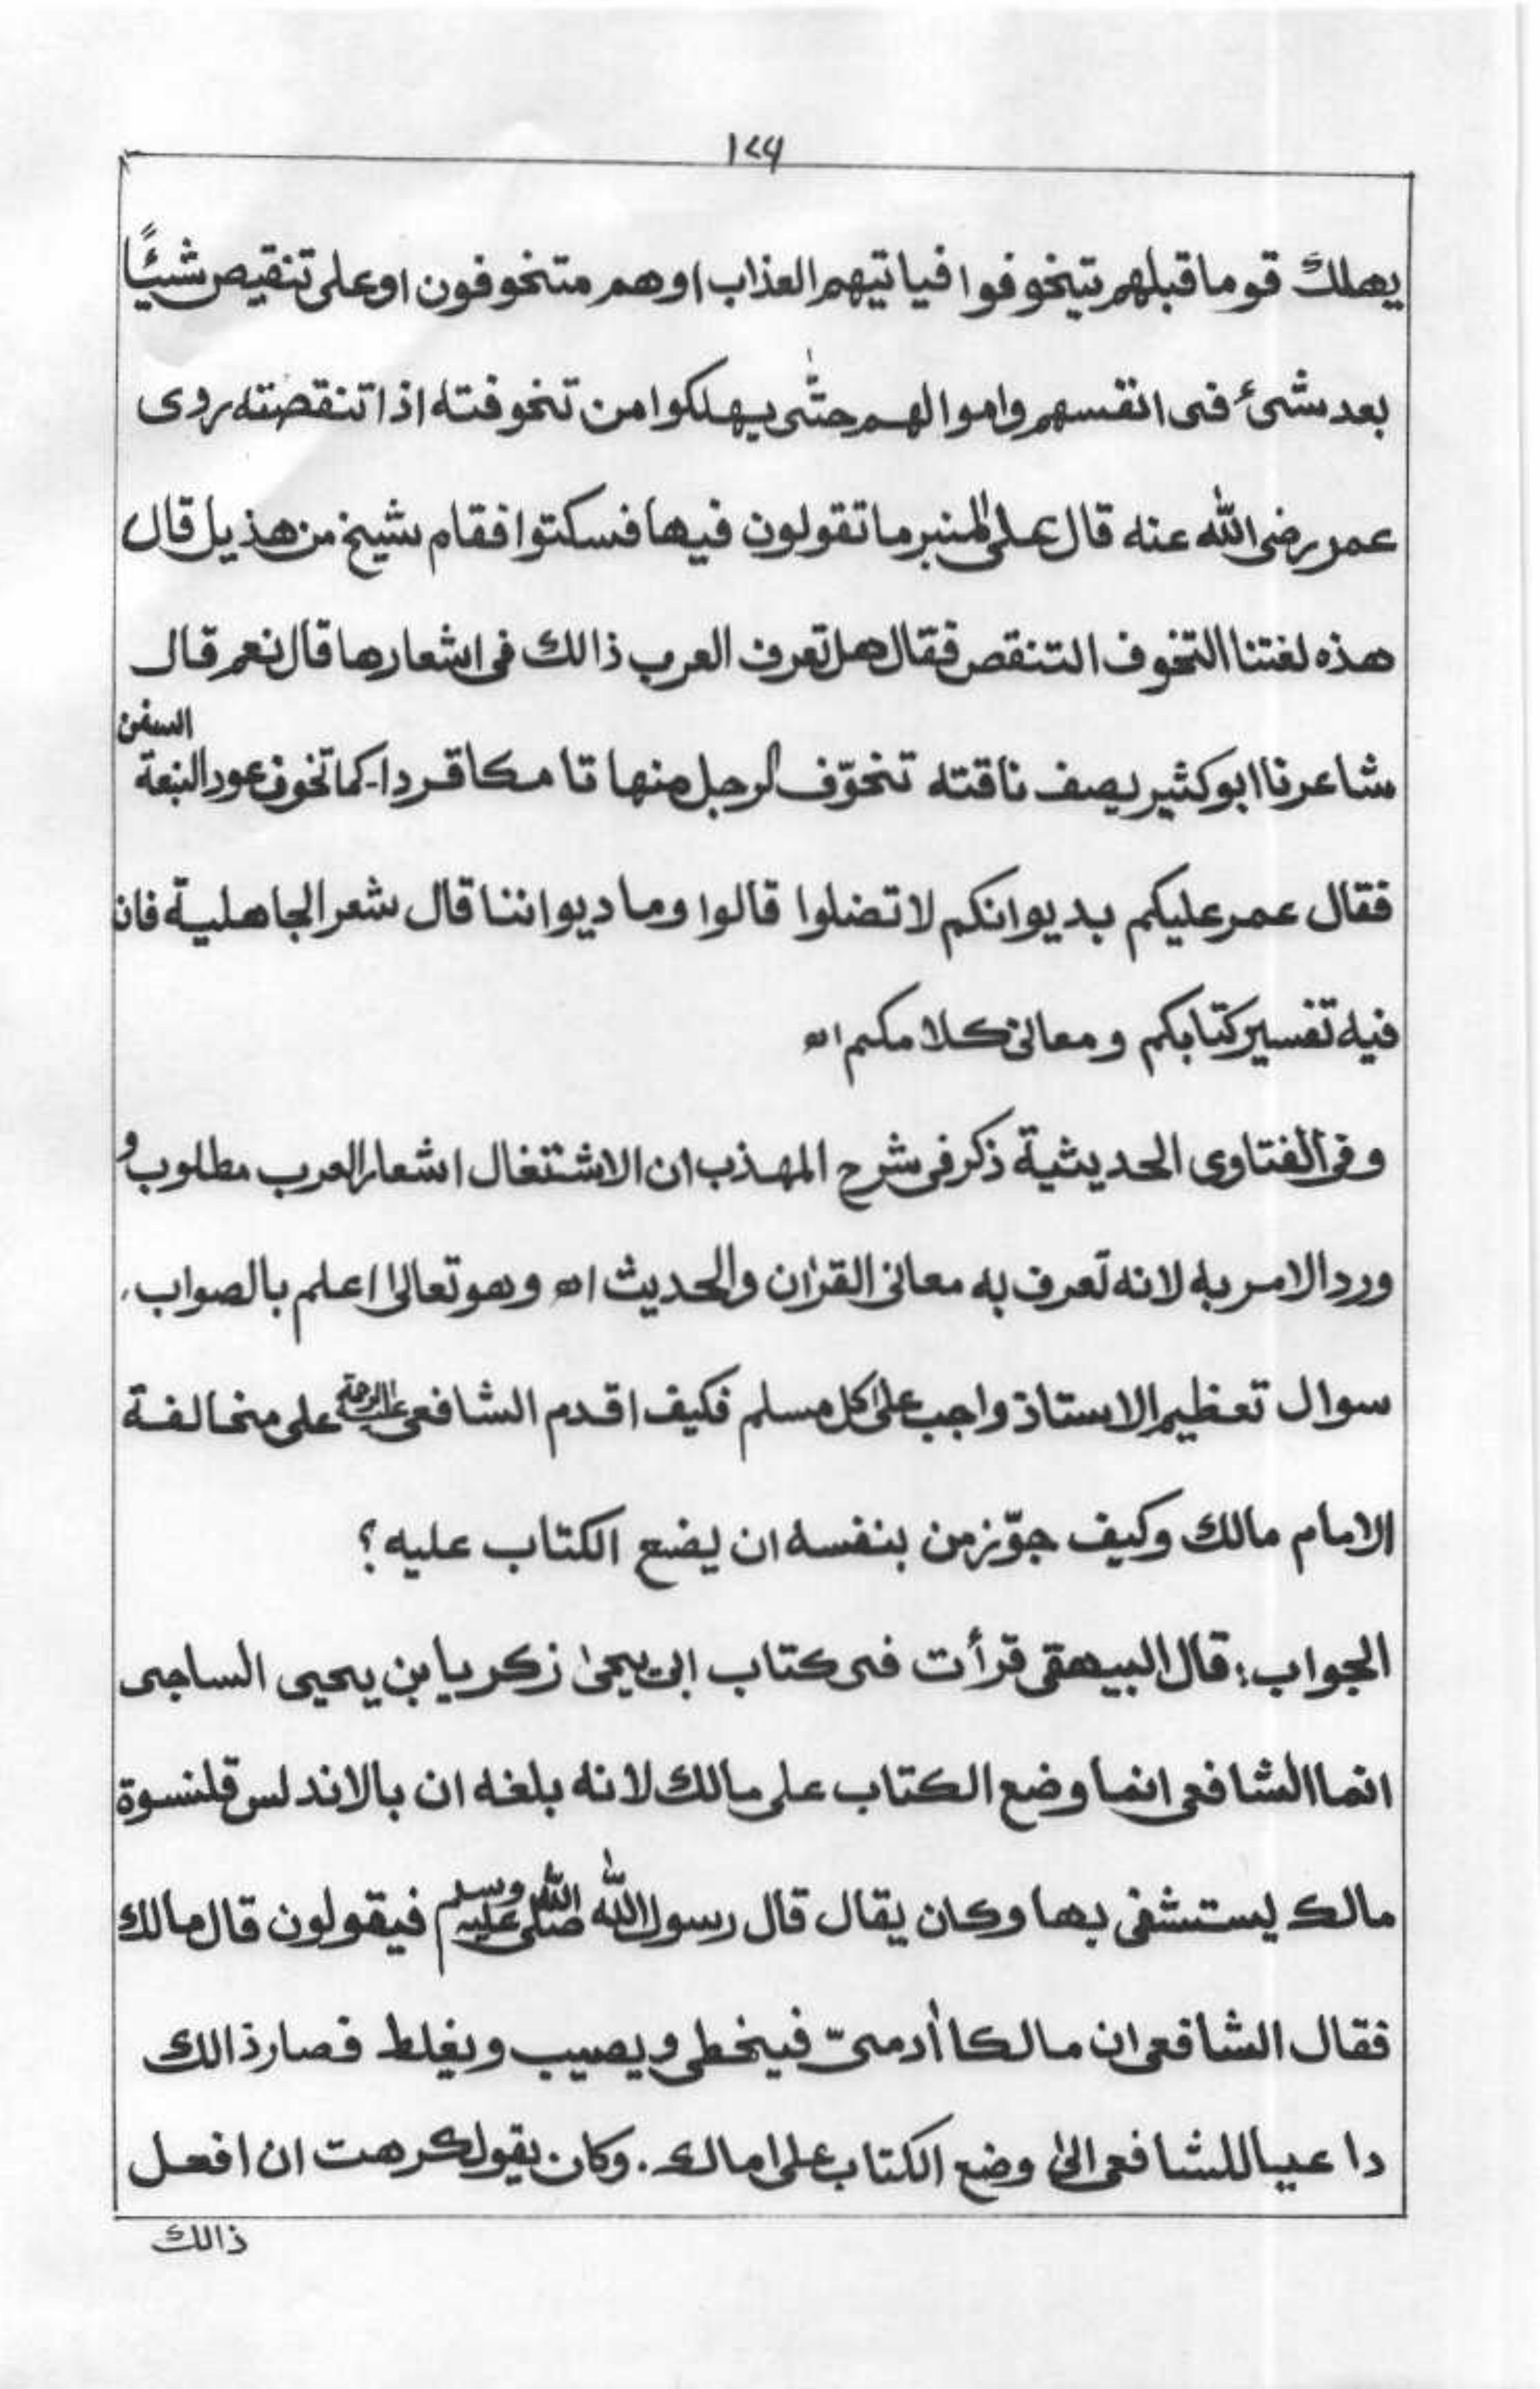 ١٧٦
يهلك قوما قبلهم تيخوفوا فياتيهم العذاب اوهم متخوفون او على تنقيص شيئًا
بعد شئ فى انفسهم واموالهم حتّٰى يهلكوا من تخوفته اذا تنقصته روى
عمر رضى الله عنه قال على المنبر ما تقولون فيها فسكتوا فقام شيخ من هذيل قال
هذه لغتنا التخوف التنقص فقال هل تعرف العرب ذالك فى اشعارها قال نعم قال
شاعرنا ابو كثير يصف ناقته تخوّف الرجل منها تا مكا قردا۔ كما تخوف عود النبعة السفن
فقال عمر عليكم بديوانكم لا تضلوا قالوا وما ديواننا قال شعر الجاهلية فان
فيه تفسير كتابكم ومعانى كلامكم اھ
وفى الفتاوى الحديثية ذكر فى شرح المهذب ان الاشتغال اشعار العرب مطلوب و
ورد الامر به لانه تعرف به معانى القرٰان والحديث اھ وهو تعالىٰ اعلم بالصواب،
سوال تعظيم الاستاذ واجب علىٰ كل مسلم فكيف اقدم الشافعى عليه الرحمة على مخالفة
الامام مالك وكيف جوّز من بنفسه ان يضع الكتاب عليه ؟
الجواب: قال البيهقى قرأت فى كتاب ابى يحيىٰ زكريا بن يحيى الساجى
انما الشافعى انما وضع الكتاب على مالك لانه بلغه ان بالاندلس قلنسوة
مالك يستشفى بها وكان يقال قال رسول الله صلى الله عليه وسلم فيقولون قال مالك
فقال الشافعى ان مالكا اٰدمىّ فيخطى ويصيب ويغلط فصار ذالك
داعيا للشافعى الىٰ وضع الكتاب علىٰ مالك. وكان يقول كرهت ان افعل
ذالك